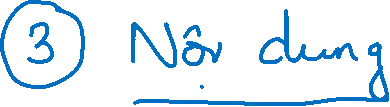 ③ Nội dung